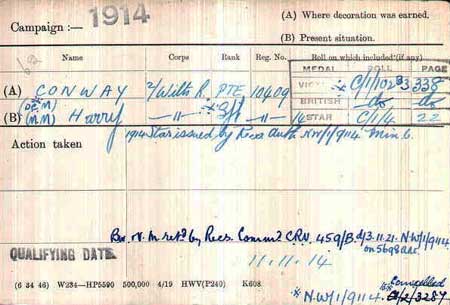 Campaign :— 1914
(A) Where decoration was earned.
(B) Present situation.
Name Corps Rank Reg. No. Roll on which included (if any)
MEDAL ROLL PAGE
(A) CONWAY 2/Wilts R. PTE 10409 VICTORY C/1/102 B3 338
(DCM) BRITISH do do
(B) (MM) Harry —"— —"— STAR C/1/4 22
Action taken 1914 Star issued by Recs Auth NW/1/9114 Min 6.
Br. V. M retd by Recs. Commd CRV. 459/B. d/3.11.21. N.W/1/9114
QUALIFYING DATE 11.11.14
(6 34 46) W234—HP5590 500,000 4/19 HWV(P240) K608
N.W/1/9114